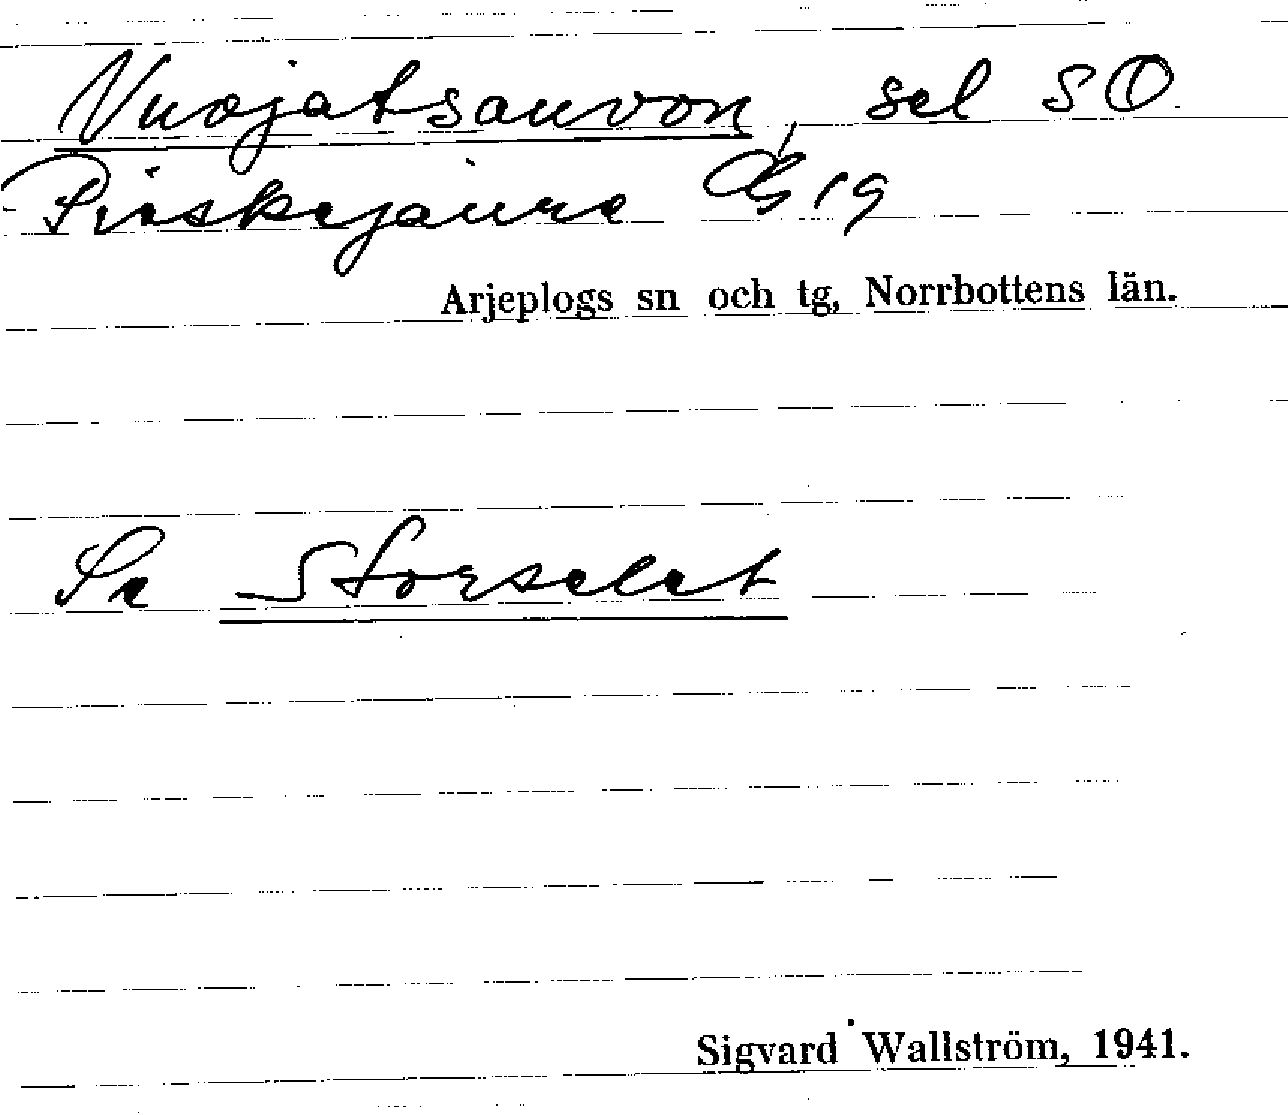 Vuojatsauvon, sel SO
Pieskejaure 19
Arjeplogs sn och tg, Norrbottens län.
Se Storselet
Sigvard Wallström, 1941.